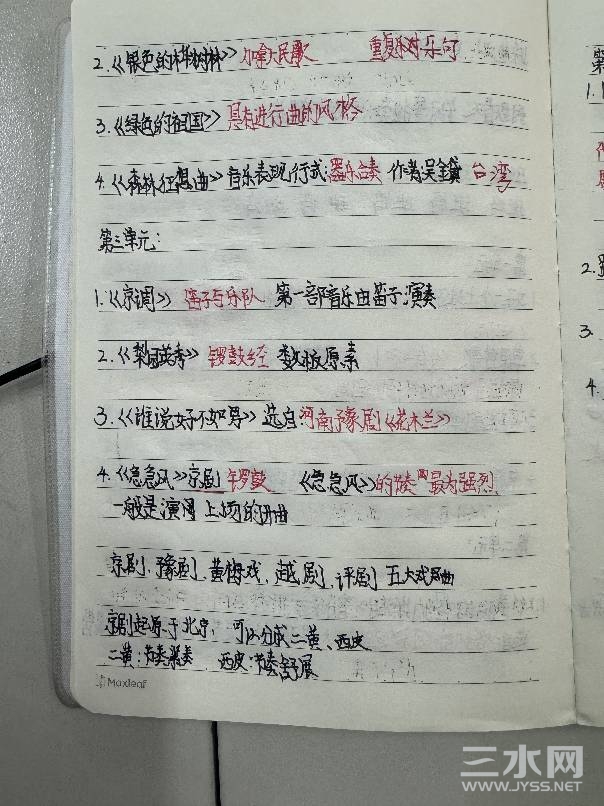 2.《银色的桦树林》加拿大民歌 重复乐对乐句
3.《绿色的祖国》具有进行曲的风格
4.《森林狂想曲》音乐表现形式:器乐合奏 作者:吴金黛 台湾
第三单元:
1.《京调》 笛子与乐队 第一部音乐由笛子演奏
2.《梨园英秀》 锣鼓经 数板原素
3.《谁说女子不如男》 选自:河南豫剧《花木兰》
4.《急急风》京剧 锣鼓 《急急风》的节奏最为强烈
一般是演员上场的开曲
京剧、豫剧、黄梅戏、越剧、评剧 五大戏曲
京剧起原于北京, 可以分成二黄、西皮
二黄:节奏 西皮:节奏舒展
Maxleaf
第
1.
2.
3.
4.
三水网
WWW.JYSS.NET